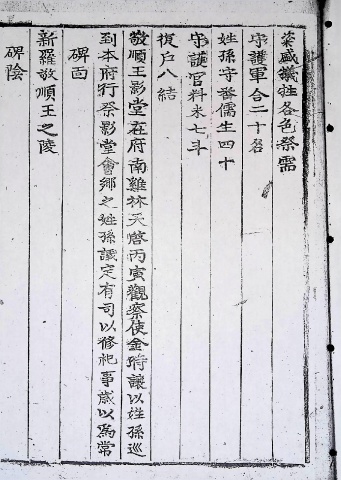 粢盛犧牲各色祭需
守護軍合二十名
姓孫守番儒生四十
守護官料米七斗
復戶八結
敬順王影堂在府南雞林天啓丙寅觀察使金時讓以姓孫巡
到本府行祭影堂會鄉之姓孫議定有司以修祀事歲以爲常
碑面
新羅敬順王之陵
碑陰